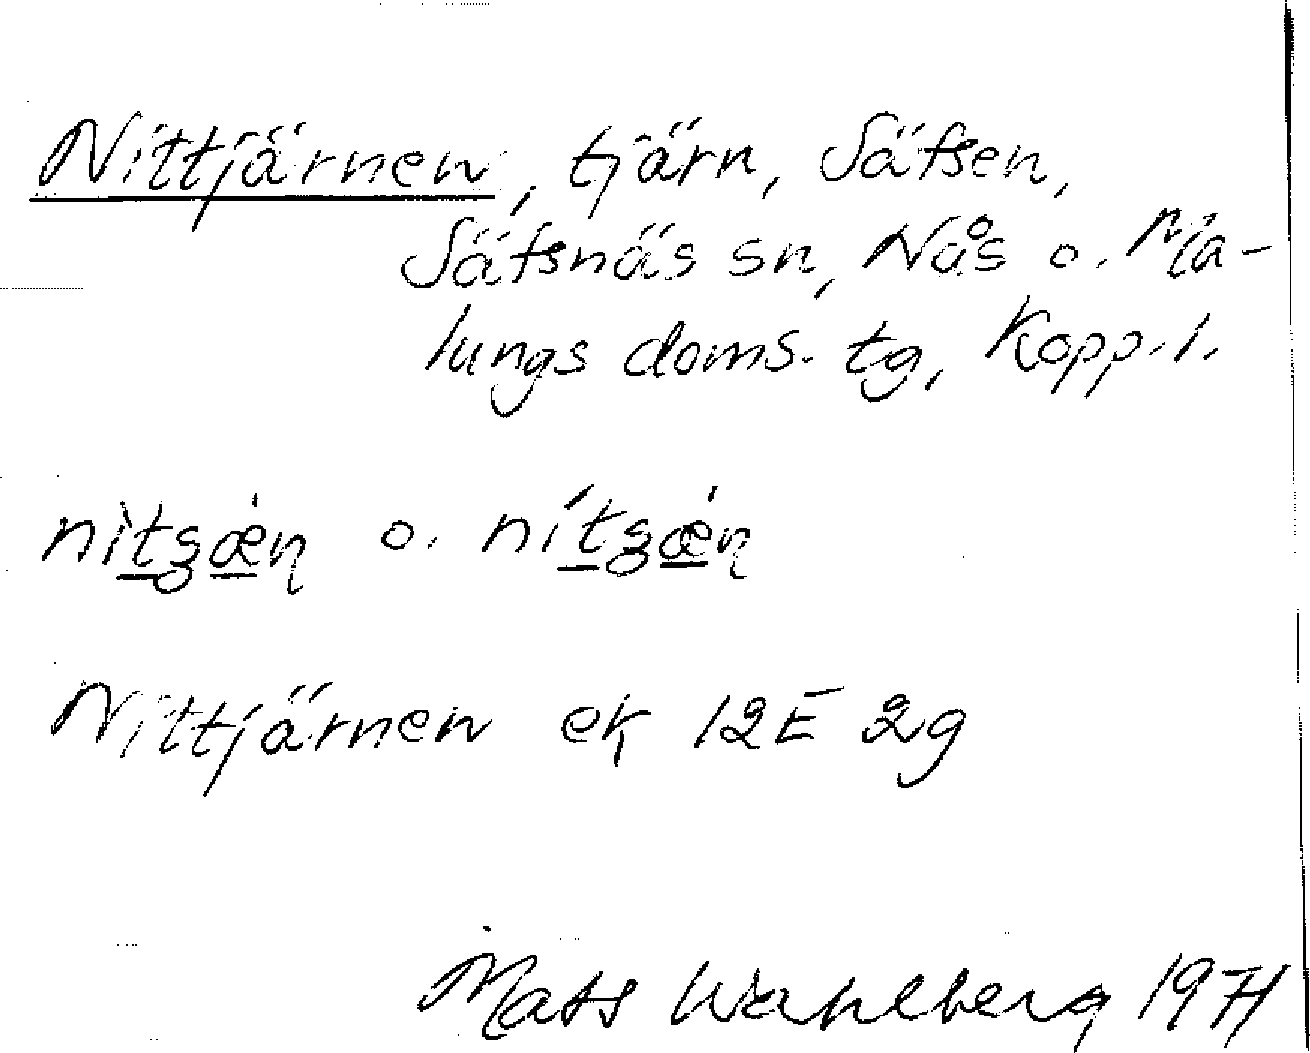 Nittjärnen, tjärn, Säfsen,
Säfsnäs sn, Nås o. Ma-
lungs doms. tg, Kopp. l.
nìtʂæ̀ṇ o. nítʂæ̀ṇ
Nittjärnen ek 12E 2g
Mats Wahlberg 1971